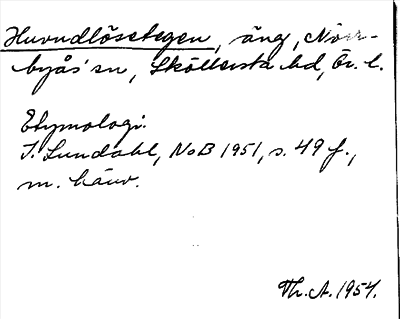 Huvudlösetegen, äng, Norr-
byås sn, Sköllersta hd, Ör. l.
Etymologi.
I. Lundahl, NoB 1951, s. 49 f.,
m. hänv.
Th. A. 1954.